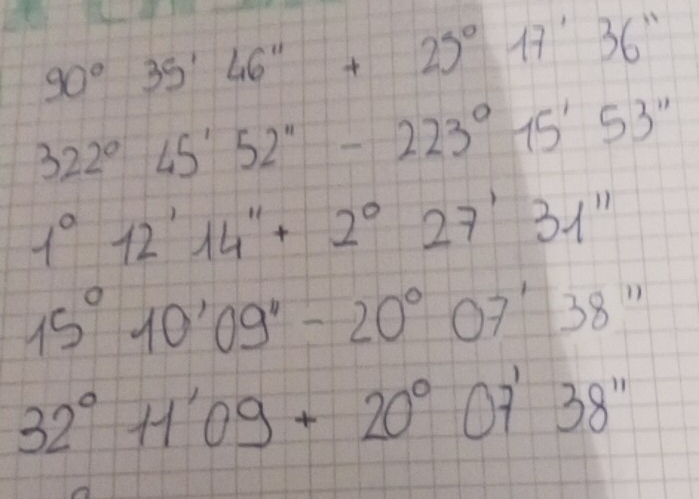 90° 35' 46" + 25° 17' 36"
322° 45' 52" - 223° 15' 53"
1° 12' 14" + 2° 27' 31"
15° 10' 09" - 20° 07' 38"
32° 11' 09 + 20° 07' 38"